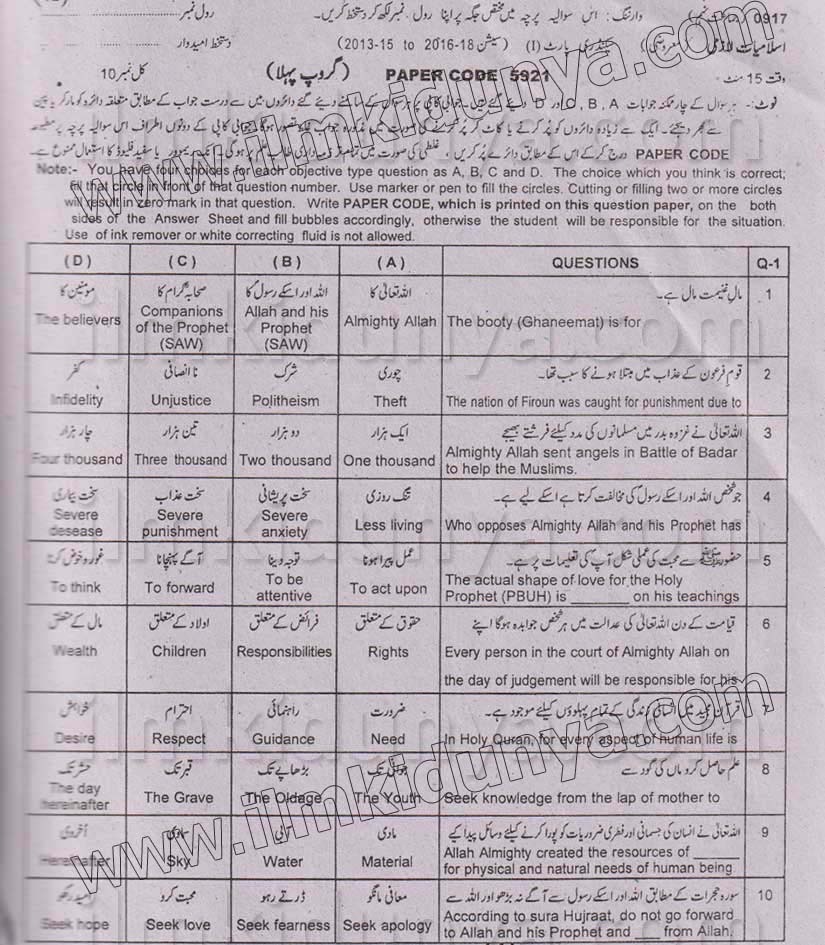 0917
وارننگ :۔ اس سوالیہ پرچہ میں مختص جگہ پر اپنا رول نمبر لکھ کر دستخط کریں۔
رول نمبر
اسلامیات لازمی
(سیشن 2013-15 to 2016-18)
دستخط امیدوار
وقت 15 منٹ
PAPER CODE 5921
(گروپ پہلا)
کل نمبر 10
PAPER CODE
Note:- You have four choices for each objective type question as A, B, C and D. The choice which you think is correct;
fill that circle in front of that question number. Use marker or pen to fill the circles. Cutting or filling two or more circles
will result in zero mark in that question. Write PAPER CODE, which is printed on this question paper, on the both
sides of the Answer Sheet and fill bubbles accordingly, otherwise the student will be responsible for the situation.
Use of ink remover or white correcting fluid is not allowed.
(D) (C) (B) (A) QUESTIONS Q-1
مومنین کا صحابہ کرام کا اللہ اور اسکے رسول کا اللہ تعالیٰ کا مالِ غنیمت مال ہے۔ 1
The believers
Companions of the Prophet (SAW)
Allah and his Prophet (SAW)
Almighty Allah
The booty (Ghaneemat) is for
کفر نا انصافی شرک چوری قوم فرعون کے عذاب میں مبتلا ہونے کا سبب تھا۔ 2
Infidelity Unjustice Politheism Theft The nation of Firoun was caught for punishment due to
چار ہزار تین ہزار دو ہزار ایک ہزار اللہ تعالیٰ نے غزوہ بدر میں مسلمانوں کی مدد کیلئے فرشتے بھیجے 3
Four thousand Three thousand Two thousand One thousand
Almighty Allah sent angels in Battle of Badar
to help the Muslims.
سخت بیماری سخت عذاب سخت پریشانی تنگ روزی جو شخص اللہ اور اسکے رسول کی مخالفت کرتا ہے اسکے لیے ہے۔ 4
Severe desease
Severe punishment
Severe anxiety
Less living
Who opposes Almighty Allah and his Prophet has
غور و خوض کرنا آگے پہنچانا توجہ دینا عمل پیرا ہونا حضور ﷺ سے محبت کی عملی شکل آپ کی تعلیمات پر ہے۔ 5
To think To forward To be attentive To act upon
The actual shape of love for the Holy
Prophet (PBUH) is _______ on his teachings
مال کے متعلق اولاد کے متعلق فرائض کے متعلق حقوق کے متعلق قیامت کے دن اللہ تعالیٰ کی عدالت میں ہر شخص جوابدہ ہوگا اپنے 6
Wealth Children Responsibilities Rights
Every person in the court of Almighty Allah on
the day of judgement will be responsible for his
خواہش احترام راہنمائی ضرورت قرآن مجید میں انسانی زندگی کے تمام پہلوؤں کیلئے موجود ہے۔ 7
Desire Respect Guidance Need In Holy Quran, for every aspect of human life is
حشر تک قبر تک بڑھاپے تک جوانی تک علم حاصل کرو ماں کی گود سے 8
The day hereinafter
The Grave The Oldage The Youth Seek knowledge from the lap of mother to
اخروی سماوی آبی مادی اللہ تعالیٰ نے انسان کی جسمانی اور فطری ضروریات کو پورا کرنے کیلئے وسائل پیدا کیے 9
Hereafter Sky Water Material
Allah Almighty created the resources of ______
for physical and natural needs of human being
امید رکھو محبت کرو ڈرتے رہو معافی مانگو سورہ حجرات کے مطابق اللہ اور اسکے رسول سے آگے نہ بڑھو اور اللہ سے 10
Seek hope Seek love Seek fearness Seek apology
According to sura Hujraat, do not go forward
to Allah and his Prophet and ___ from Allah.
www.ilmkidunya.com
www.ilmkidunya.com
ilmkidunya.com